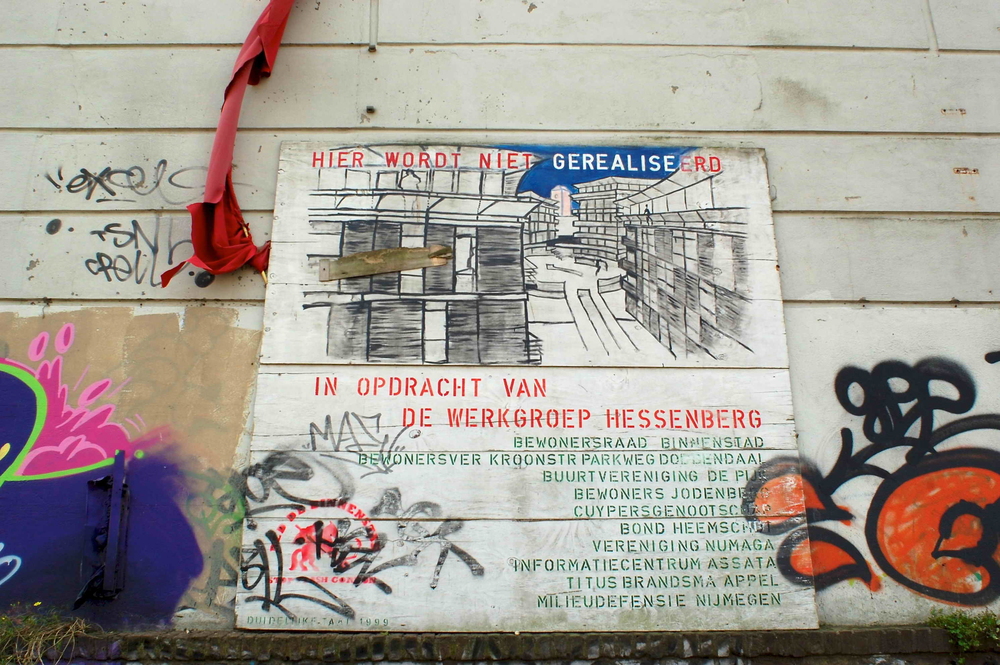 HIER WORDT NIET GEREALISEERD
IN OPDRACHT VAN
DE WERKGROEP HESSENBERG
BEWONERSRAAD BINNENSTAD
BEWONERSVER KROONSTR PARKWEG DODDENDAAL
BUURTVERENIGING DE PIJP
BEWONERS JODENBERG
CUYPERSGENOOTSCHAP
BOND HEEMSCHUT
VERENIGING NUMAGA
INFORMATIECENTRUM ASSATA
TITUS BRANDSMA APPEL
MILIEUDEFENSIE NIJMEGEN
1999